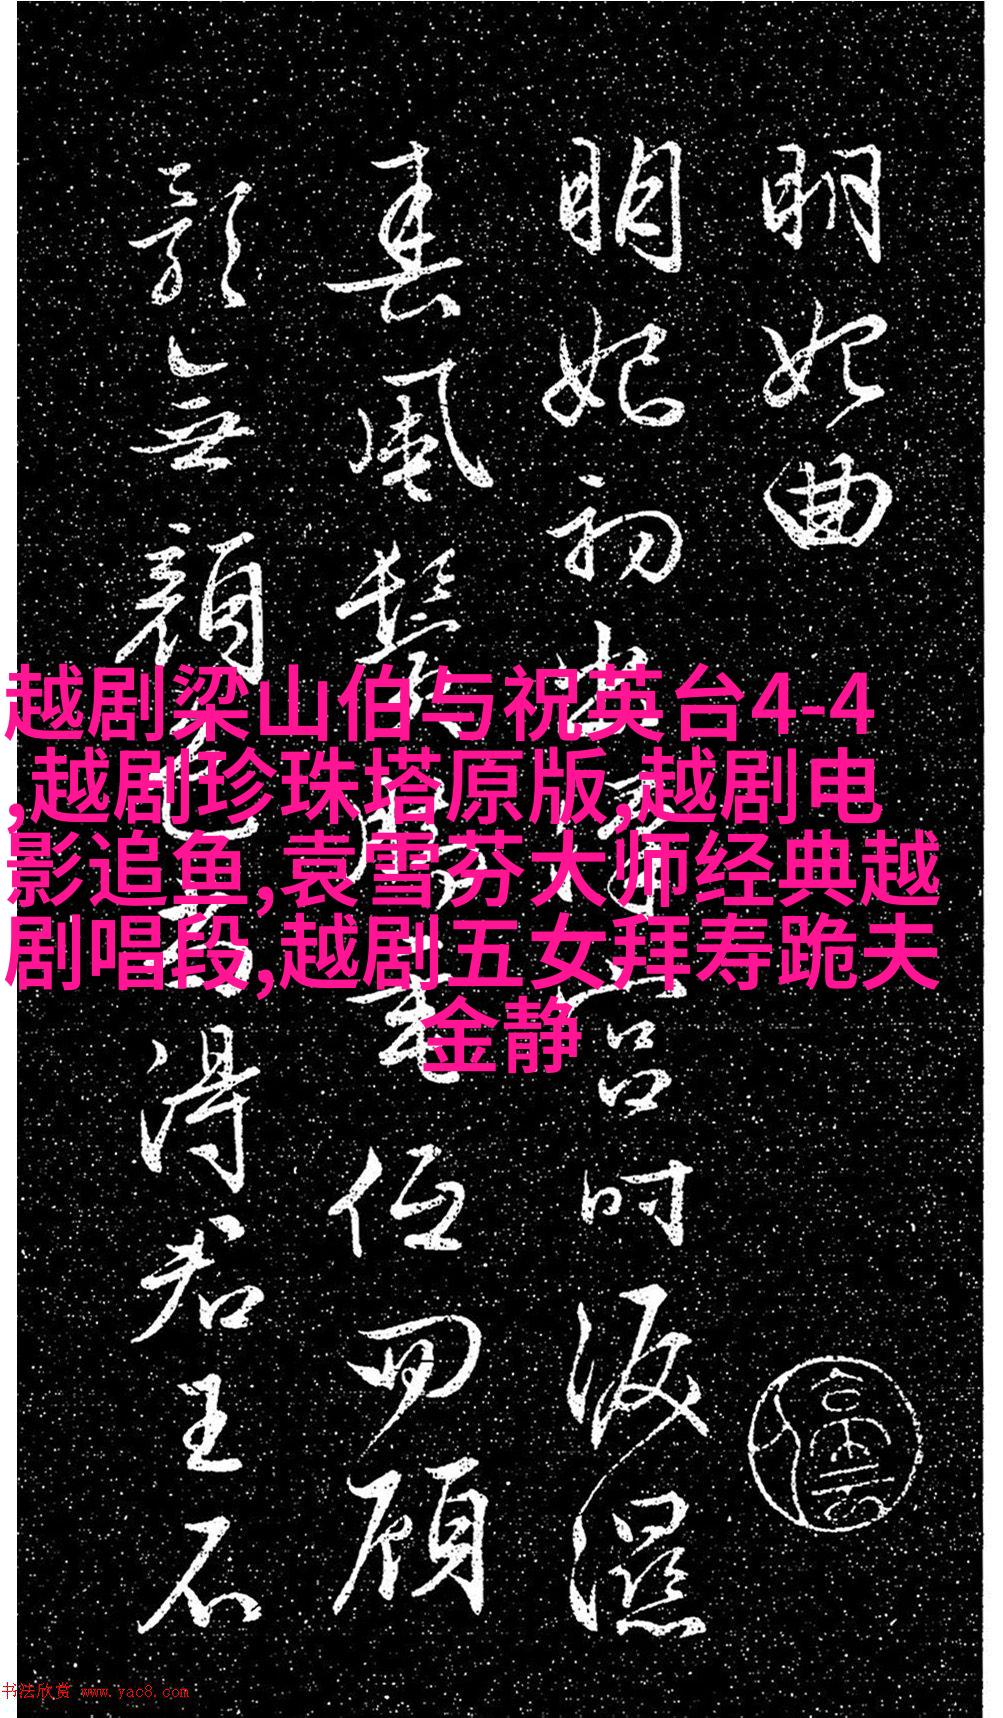 明妃曲
明妃初出漢宮時淚濕
春風鬢腳垂低回顧
影無顏色尚得君王不
越剧梁山伯与祝英台4-4
,越剧珍珠塔原版,越剧电
影追鱼,袁雪芬大师经典越
剧唱段,越剧五女拜寿跪夫
金静
书法欣赏 www.yac8.com